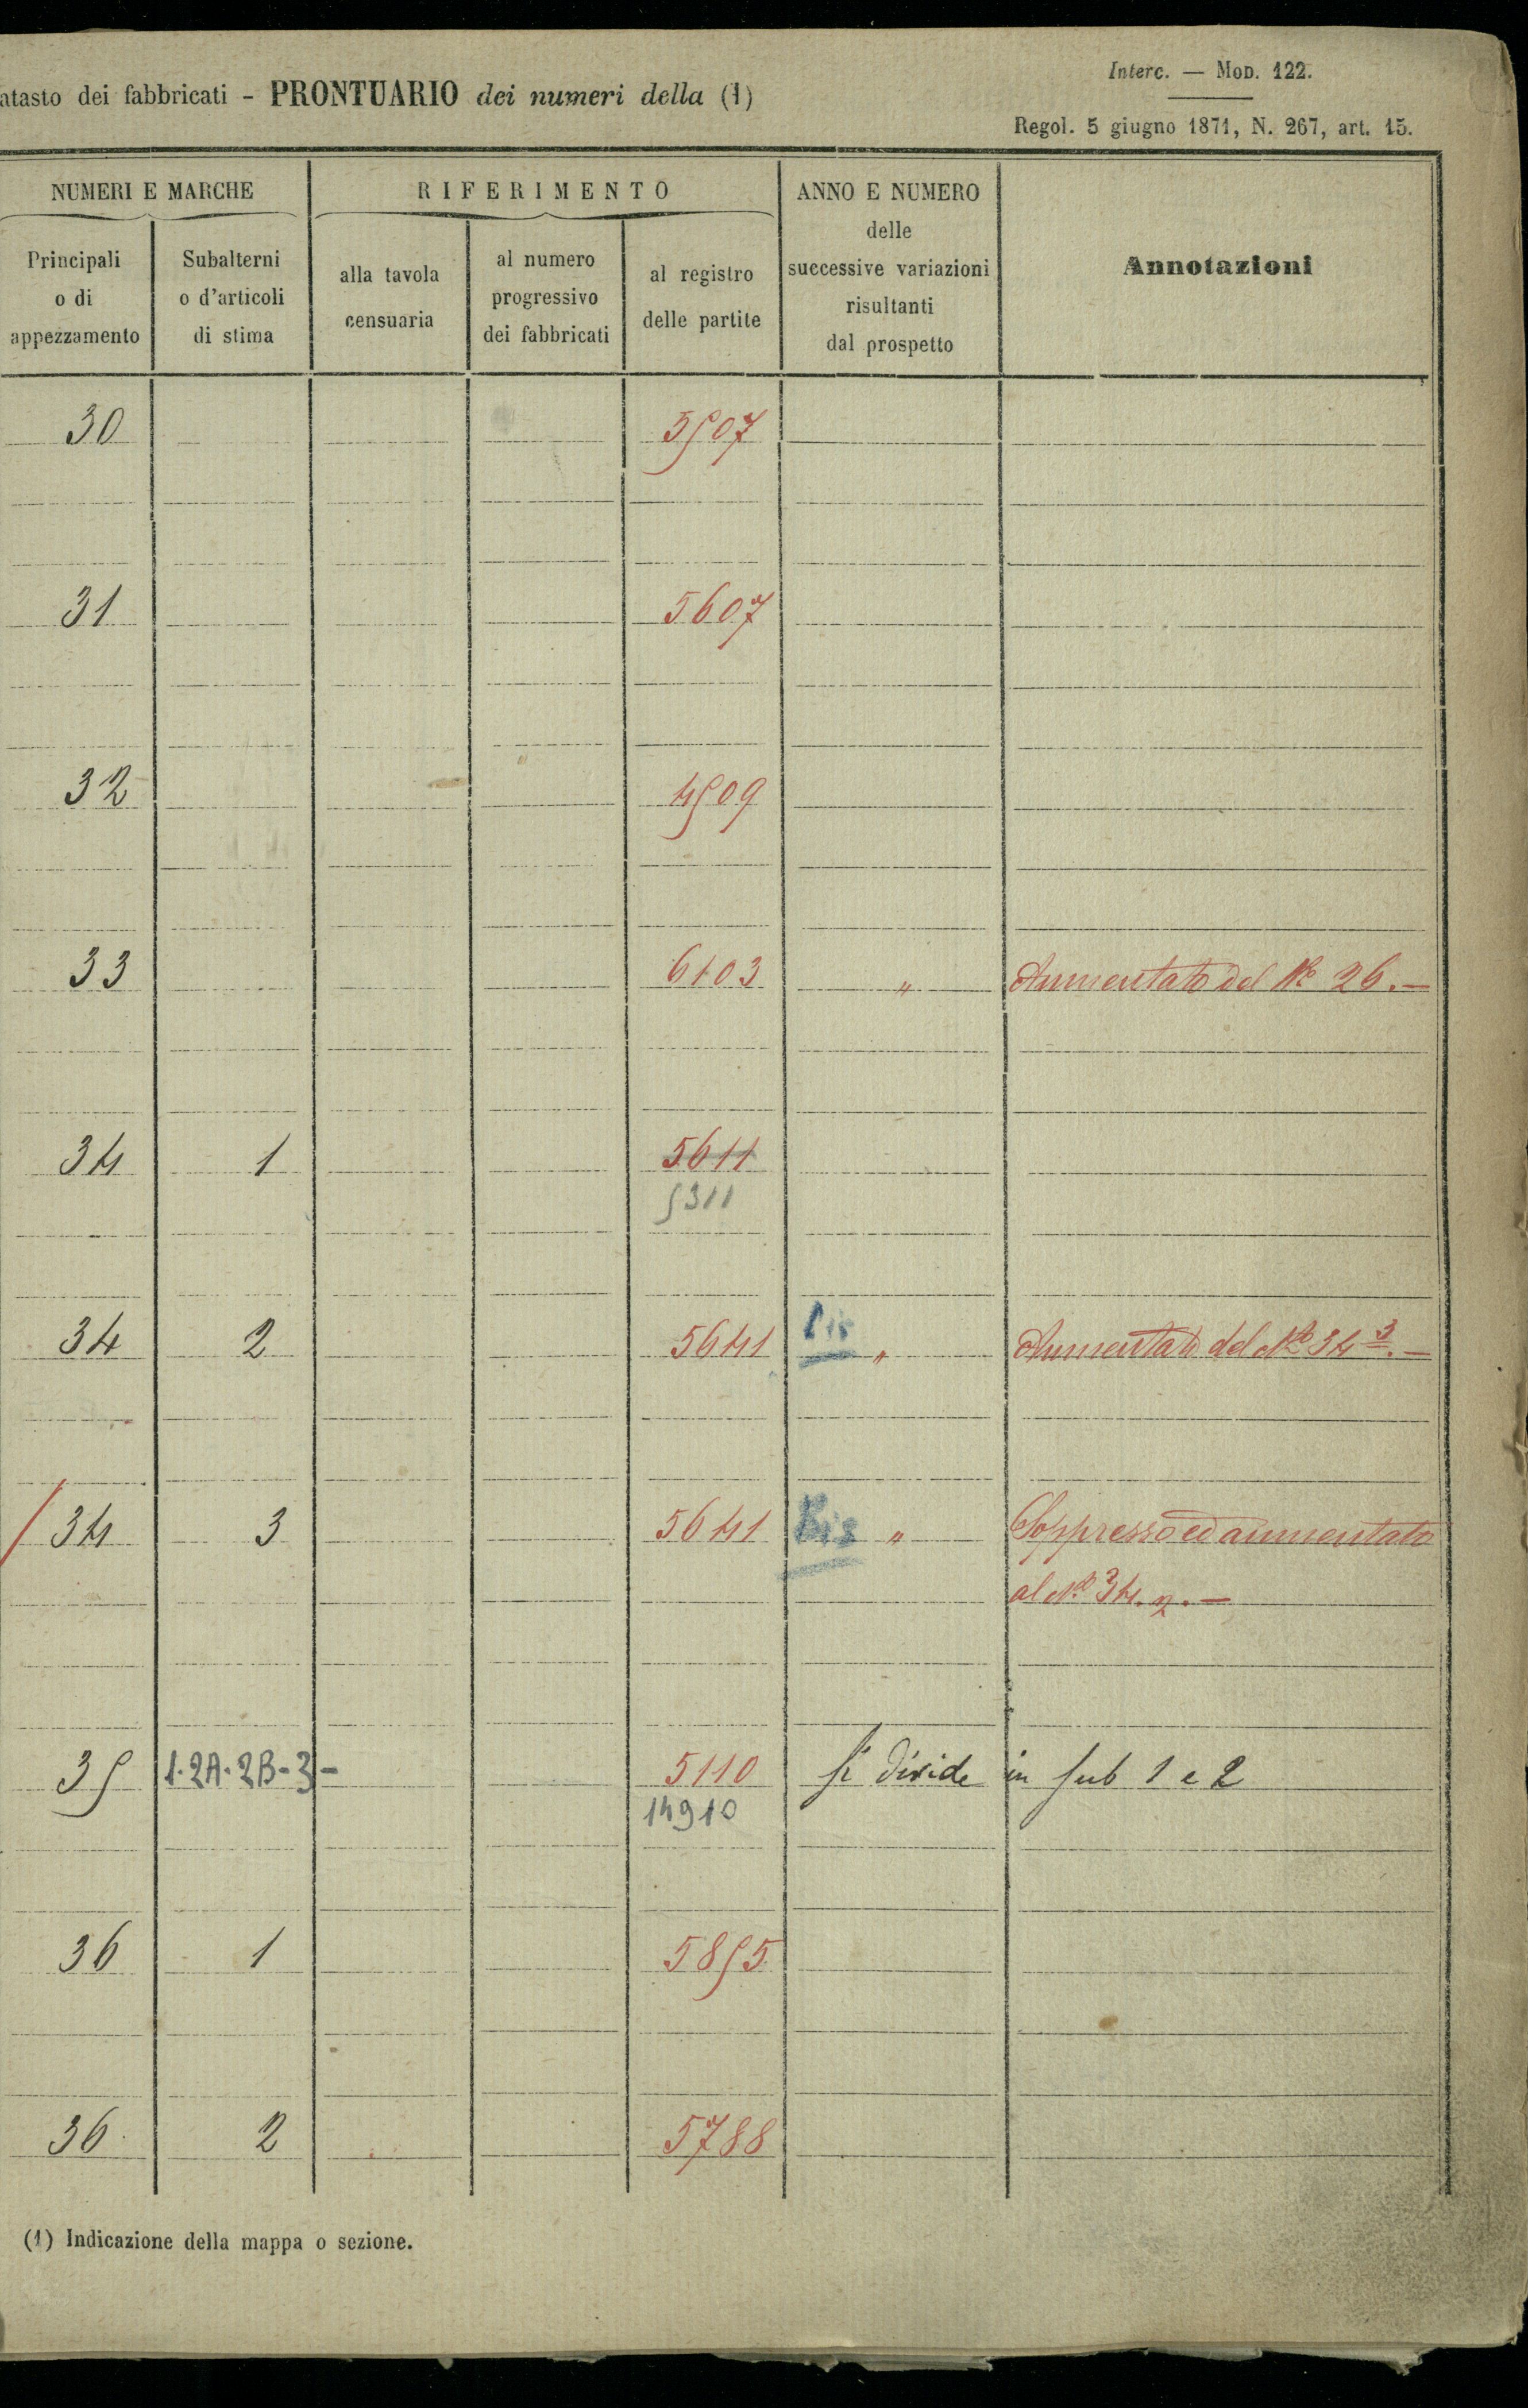 atasto dei fabbricati - PRONTUARIO dei numeri della (1)
Interc. — Mod. 122.
Regol. 5 giugno 1871, N. 267, art. 15.
NUMERI E MARCHE
RIFERIMENTO
ANNO E NUMERO
delle
successive variazioni
risultanti
dal prospetto
Annotazioni
Principali
o di
appezzamento
Subalterni
o d'articoli
di stima
alla tavola
censuaria
al numero
progressivo
dei fabbricati
al registro
delle partite
30 5507
31 5607
32 4509
33 6103 " Aumentato del No 26.—
34 1 5611
5311
34 2 5641 " Aumentato del No 34 3.—
/34 3 5641 Bis " Soppresso ed aumentato
al No 34.2.—
35 1.2A.2B-3- 5110 si divide in sub 1 e 2
14910
36 1 5855
36 2 5788
(1) Indicazione della mappa o sezione.